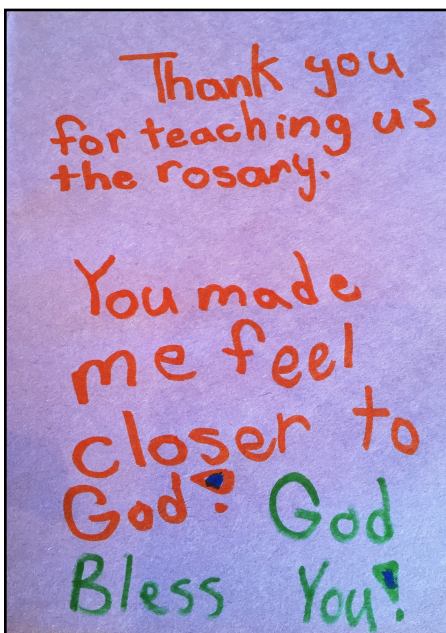 Thank you
for teaching us
the rosary.
You made
me feel
closer to
God! God
Bless You!